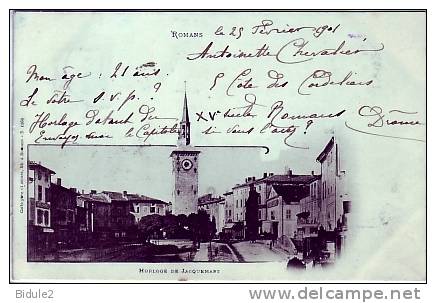 ROMANS
le 25 Février 1901
Antoinette Chevalier
Mon âge : 21 ans.
5 Côte des Cordeliers
Le vôtre s.v.p. ?
Horloge datant du XVe siècle Romans Drôme
Envoyez-moi le Capitole si vous l'avez ?
HORLOGE DE JACQUEMART
Bidule2
www.delcampe.net